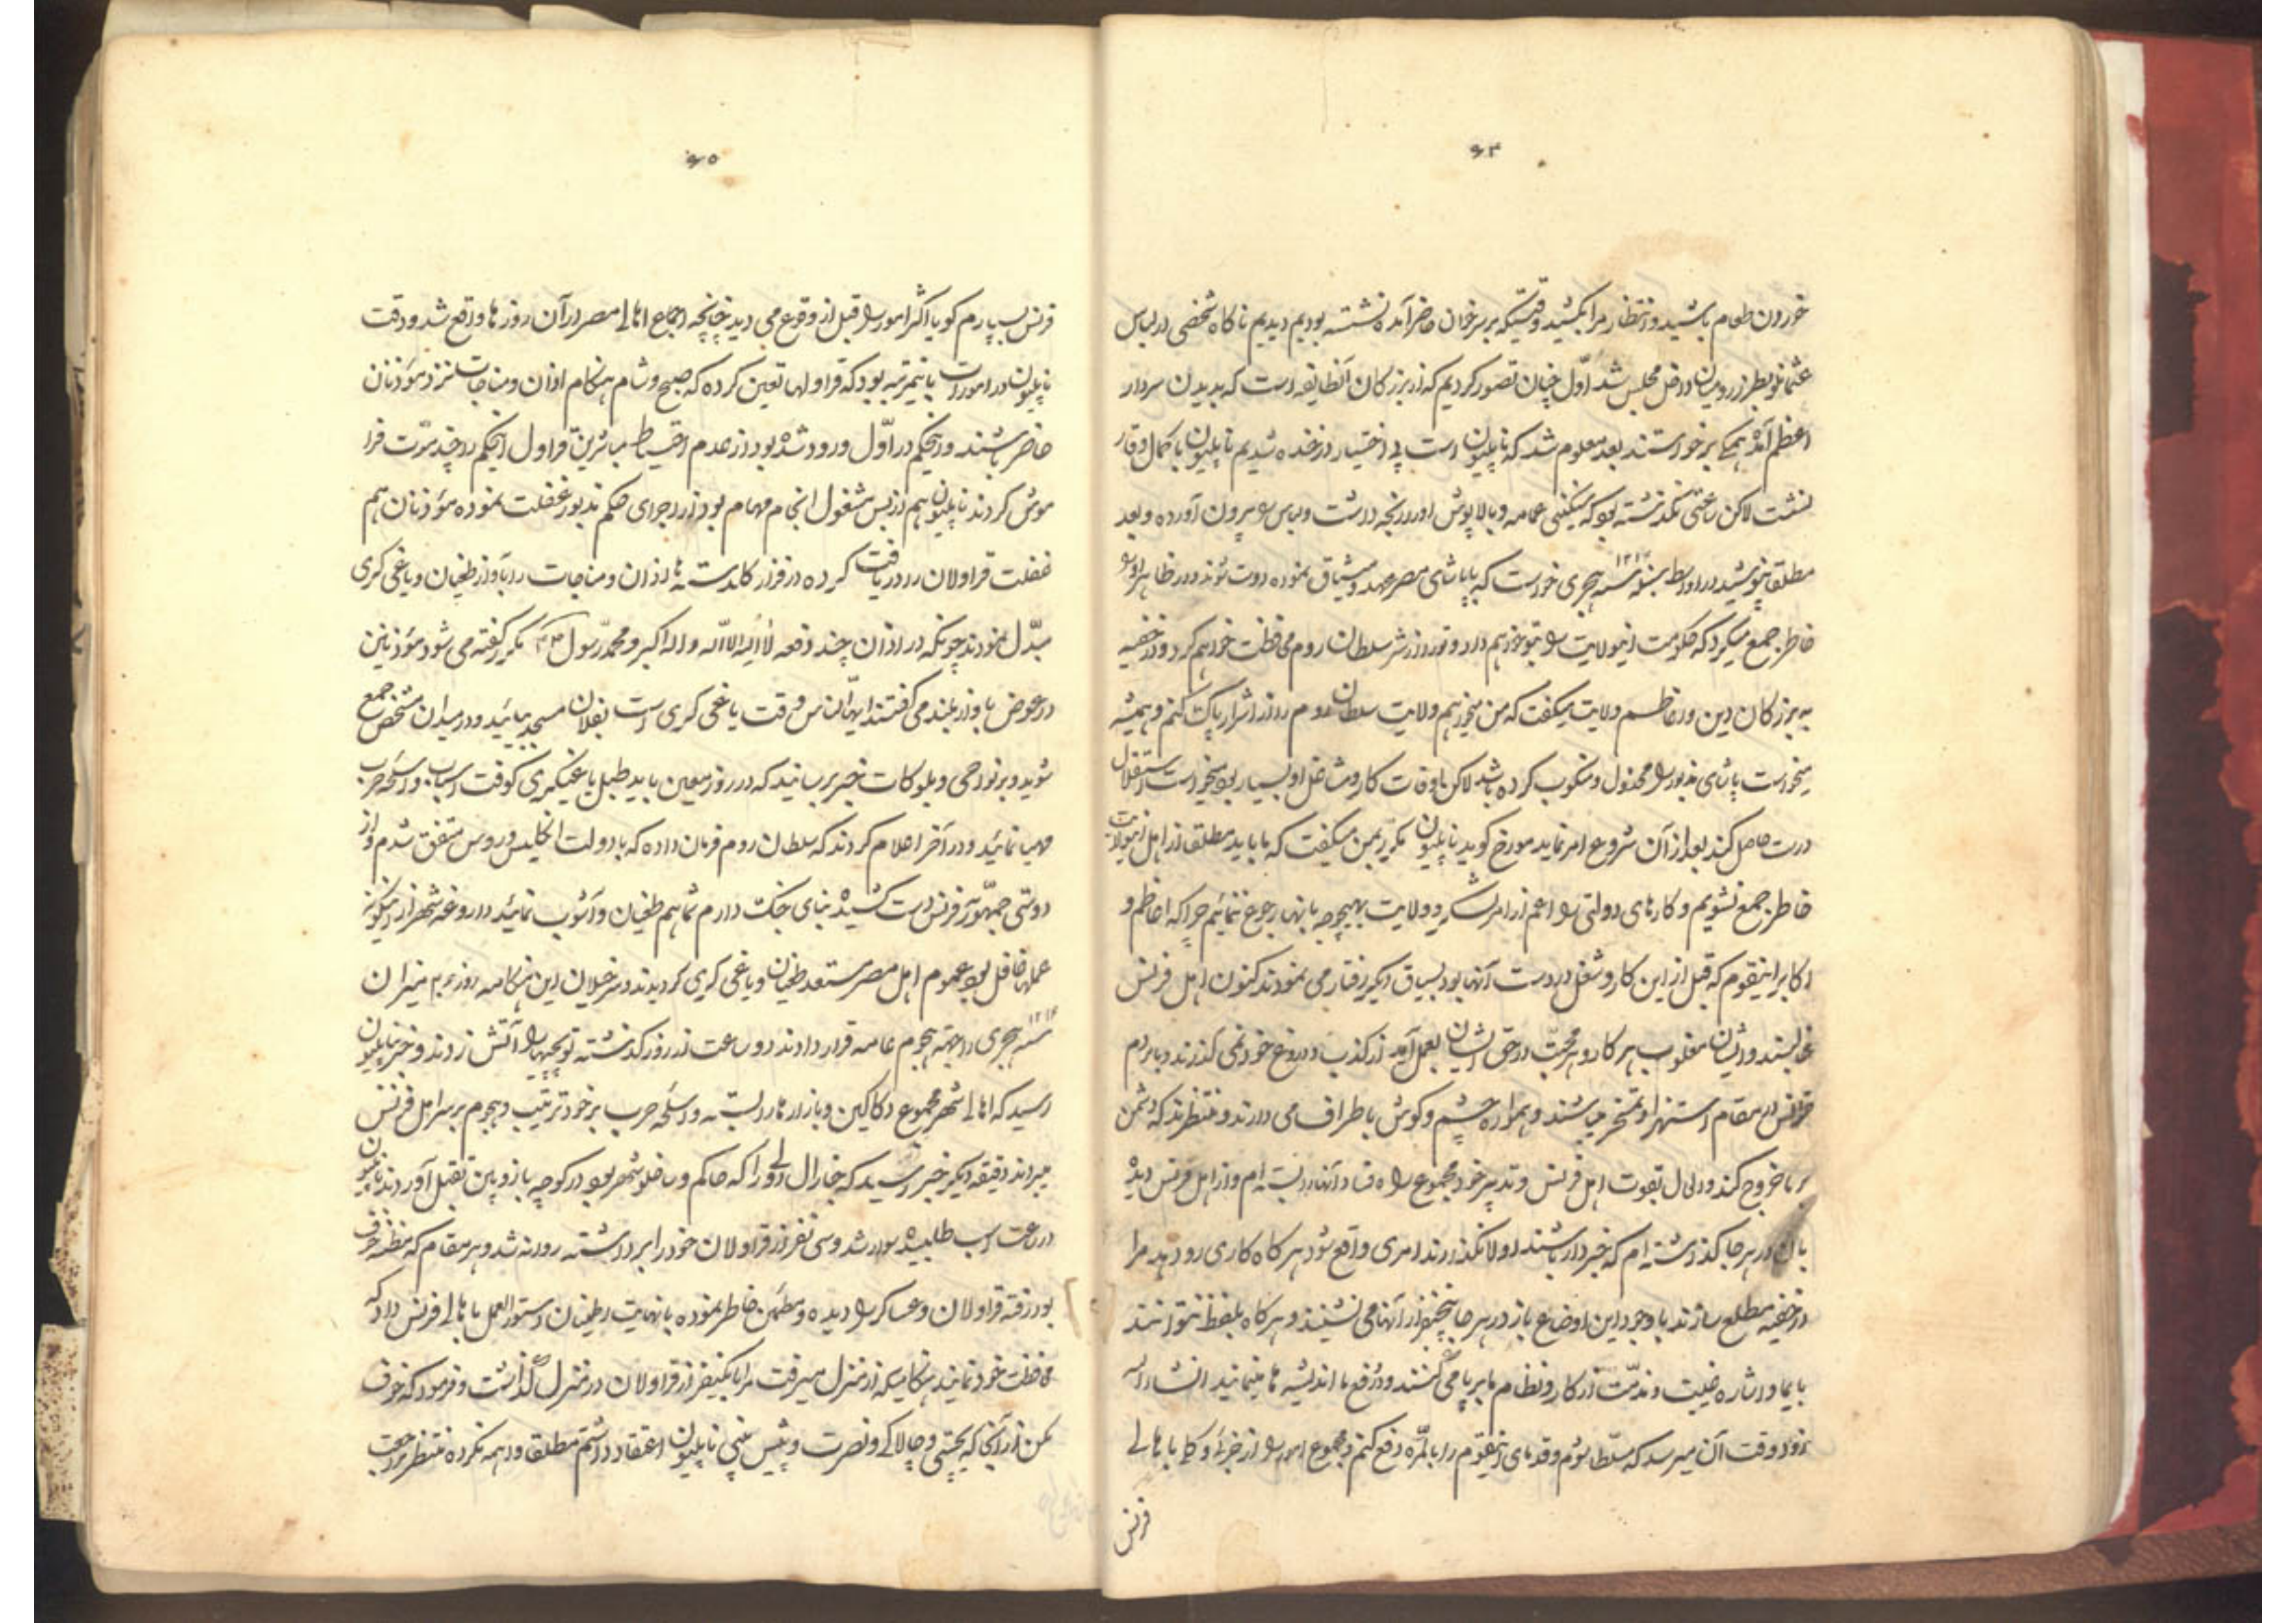 ۶۴
خوردن طعام باشید و انتظار مرا نکشید وقتیکه بر سر خوان حاضر آمده نشسته بودیم دیدیم ناکاه شخصی در لباس
عثمانلو بطرز رومیان داخل مجلس شد اول چنان تصور کردیم که از بزرکان آنطایفه است که بدیدن سردار
اعظم آمده همکی برخواستند بعد معلوم شد که ناپلیون است بی اختیار در خنده شدیم ناپلیون با کمال وقار
نشست لاکن ساعتی نکذشته بود که سنکینی عمامه و بالاپوش او را رنجه داشت و لباس را بیرون آورده و بعد
مطلقا نپوشید در اواسط سنه ۱۲۱۳ هجری خواست که با پاشای مصر عهد و میثاق نموده دوست شوند در ظاهر او را
خاطر جمع میکرد که حکومت اینولایت را بتو خواهم داد و تو را از شر سلطان روم محافظت خواهم کرد و در خفیه
به بزرکان دین و اعاظم ولایت میکفت که من میخواهم ولایت سلطان روم را از اشرار پاک کنم و همیشه
میخواست پاشای مذبور را مخذول و منکوب کرده باشد لاکن باوقات کار و مشاغل او بسیار بود میخواست استقلال
درست حاصل کند بعد از آن شروع امر نماید مورخ کوید ناپلیون مکرر بمن میکفت که ما باید مطلقا از اهل اینولایت
خاطر جمع نشویم و کارهای دولتی را اعم از امر لشکر و ولایت بهیچوجه بانها رجوع ننمائیم چرا که اعاظم و
اکابر اینقوم که قبل از این کار و شغل در دست آنها بود بسیاق دیکر رفتار می نمودند کنون اهل فرنس
غالبند و ایشان مغلوب هر کار و هر محبت در حق ایشان بعمل آید از کذب و دروغ خود نمی کذرند و با مردم
فرانس در مقام استهزا و تمسخر میباشند و همواره چشم و کوش باطراف می دارند و منتظرند که دشمن
بر ما خروج کند و لی ال بقوت اهل فرنس و تدبیر خود مجموع راه فساد آنها را بسته ام و از اهل فرنس دیده
بان در هر جا کذاشته ام که خبردار باشند اولا نکذارند امری واقع شود هر کاه کاری رو دهد مرا
در خفیه مطلع سازند با وجود این اوضاع باز در هر جا پنج نفر از آنها می نشینند و هر کاه بلفظ نتوانند
بایما و اشاره غیبت و مذمت از کار و نظام ما برپا می کنند و در دفع ما اندیشه ها مینمایند انشاء الله
زود وقت آن میرسد که مسلط شوم و قدمای اینقوم را بالمره دفع کنم و مجموع امور را از جزئی و کلی باهالی
فرنس
۶۵
فرنس بسپارم کویا اکثر امور را قبل از وقوع می دید چنانچه اجماع اهالی مصر در آن روزها واقع شد و دقت
ناپلیون در امورات باینمرتبه بود که قراولها تعین کرده که صبح و شام هنکام اذان و مناجات نزد مؤذنان
حاضر باشند و اینحکم در اول ورود شده بود از عدم احتیاط مباشرین قراول اینحکم را چند مرت فرا
موش کردند ناپلیون هم از بس مشغول انجام مهام بود از اجرای حکم مذبور غفلت نموده مؤذنان هم
غفلت قراولان را دریافت کرده در فراز کلدسته ها اذان و مناجات را بآواز طغیان و یاغی کری
مبدل نمودند چونکه در اذان چند دفعه لا اله الا الله و الله اکبر و محمد رسول الله مکرر کفته می شود مؤذنین
در عوض بآواز بلند می کفتند ایها الناس وقت یاغی کری است بفلان مسجد بیائید و در میدان مشخص جمع
شوید و بر نواحی و بلوکات خبر برسانید که در روز معین باید طبل یاغیکری کوفت اسباب و اسلحه حرب
مهیا نمائید و در آخر اعلام کردند که سلطان روم فرمان داده که با دولت انکلیس و روس متفق شدم و از
دوستی جمهوریه فرنس دست کشیده بنای جنک دارم شما هم طغیان و آشوب نمائید داروغه شهر از اینکونه
عملها غافل بود عموم اهل مصر مستعد طغیان و یاغی کری کردیدند و سرخیلان این هنکامه روز ۲۰ میزان
سنه ۱۲۱۴ هجری را بجهة هجوم عامه قرار دادند دو ساعت از روز کذشته توپچیها را آتش زدند و خبر بناپلیون
رسید که اهالی شهر مجموع دکاکین و بازارها را بسته و اسلحه حرب بر خود ترتیب و هجوم بر سر اهل فرنس
میرانند دقیقه دیکر خبر رسید که جنارال دلوپوی را که حاکم و ساخلو شهر بود در کوچه باز وپین بقتل آوردند ناپلیون
در ساعت اسب طلبیده سوار شد و سی نفر از قراولان خود را برداشته روانه شد و هر مقام که مظنه خوف
بود رفته قراولان و عساکر را دیده و مطمئن خاطر نموده بانهایت اطمینان دستورالعمل باهالی فرنس داد که
محافظت خود نمایند هنکامیکه از منزل میرفت مرا با یکنفر از قراولان در منزل کذاشت و فرمود که خوف
مکن از آنجا که بچستی و چالاکی و نصرت و پیش بینی ناپلیون اعتقاد داشتم مطلقا واهمه نکرده منتظر مراجعت